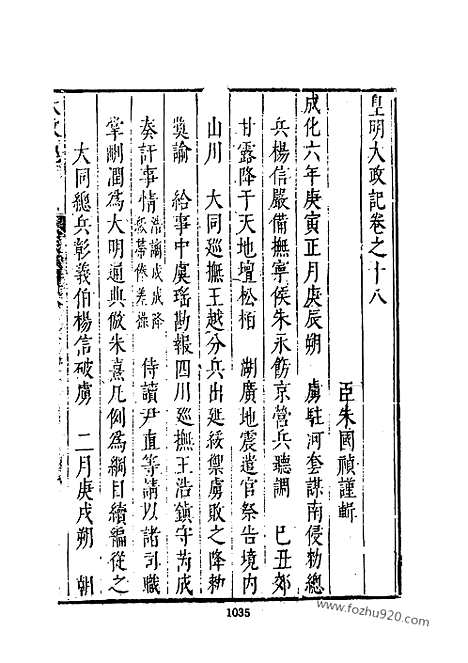 皇明大政記卷之十八
臣朱國禎謹輯
成化六年庚寅正月庚辰朔　虜駐河套謀南侵勑總
兵楊信嚴備撫寧侯朱永飭京營兵聽調　己丑郊
甘露降于天地壇松栢　湖廣地震遣官祭告境内
山川　大同巡撫王越分兵出延綏禦虜敗之降勑
奬諭　給事中虞瑤勘報四川巡撫王浩鎮守芮成
奏訐事情浩謫戍成降級帶俸差操　侍讀尹直等請以諸司職
掌刪潤爲大明通典倣朱熹凡例爲綱目續編從之
大同總兵彰義伯楊信破虜　二月庚戌朔　朝
1035
www.fozhu920.com